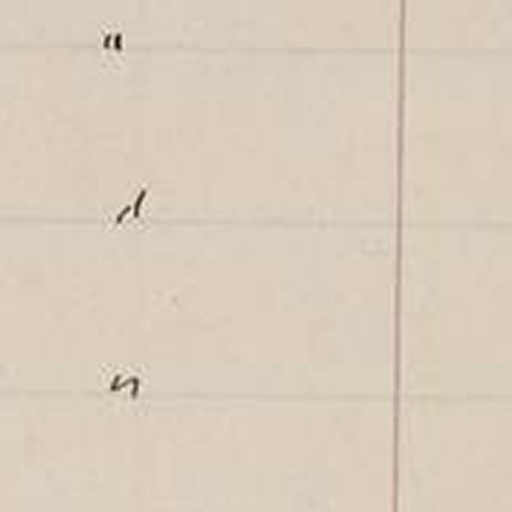 "
"
"